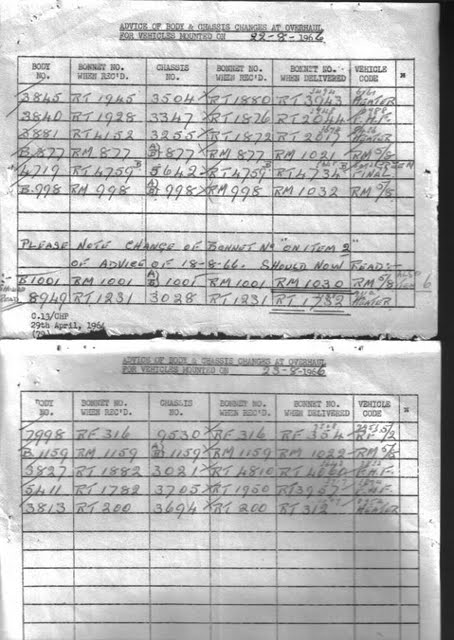 ADVICE OF BODY & CHASSIS CHANGES AT OVERHAUL
FOR VEHICLES MOUNTED ON 22-8-1966
BODY NO. BONNET NO. WHEN REC'D. CHASSIS NO. BONNET NO. WHEN REC'D. BONNET NO. WHEN DELIVERED VEHICLE CODE
3845 RT 1945 3504 RT 1880 RT 3943
3840 RT 1928 3347 RT 1876 RT 2044
3881 RT 4152 3255 RT 1872 RT 2017
B.877 RM 877 877 RM 877 RM 1021 RM 5/8
4719 RT 4759 5642 RT 4759 RT 4734 FINAL
B.998 RM 998 998 RM 998 RM 1032 RM 5/8
PLEASE NOTE CHANGE OF BONNET NO "ON ITEM 2"
OF ADVICE OF 18-8-66. SHOULD NOW READ:-
B1001 RM 1001 1001 RM 1001 RM 1030 RM 5/8
8949 RT 1231 3028 RT 1231 RT 1732
C.13/CHP
29th April, 1964
ADVICE OF BODY & CHASSIS CHANGES AT OVERHAUL
FOR VEHICLES MOUNTED ON 23-8-1966
BODY NO. BONNET NO. WHEN REC'D. CHASSIS NO. BONNET NO. WHEN REC'D. BONNET NO. WHEN DELIVERED VEHICLE CODE
7998 RF 316 9530 RF 316 RF 354
B.1159 RM 1159 1159 RM 1159 RM 1022 RM 5/8
3827 RT 1882 3021 RT 4810
5411 RT 1782 3705 RT 1950 RT 3957
3813 RT 200 3694 RT 200 RT 312